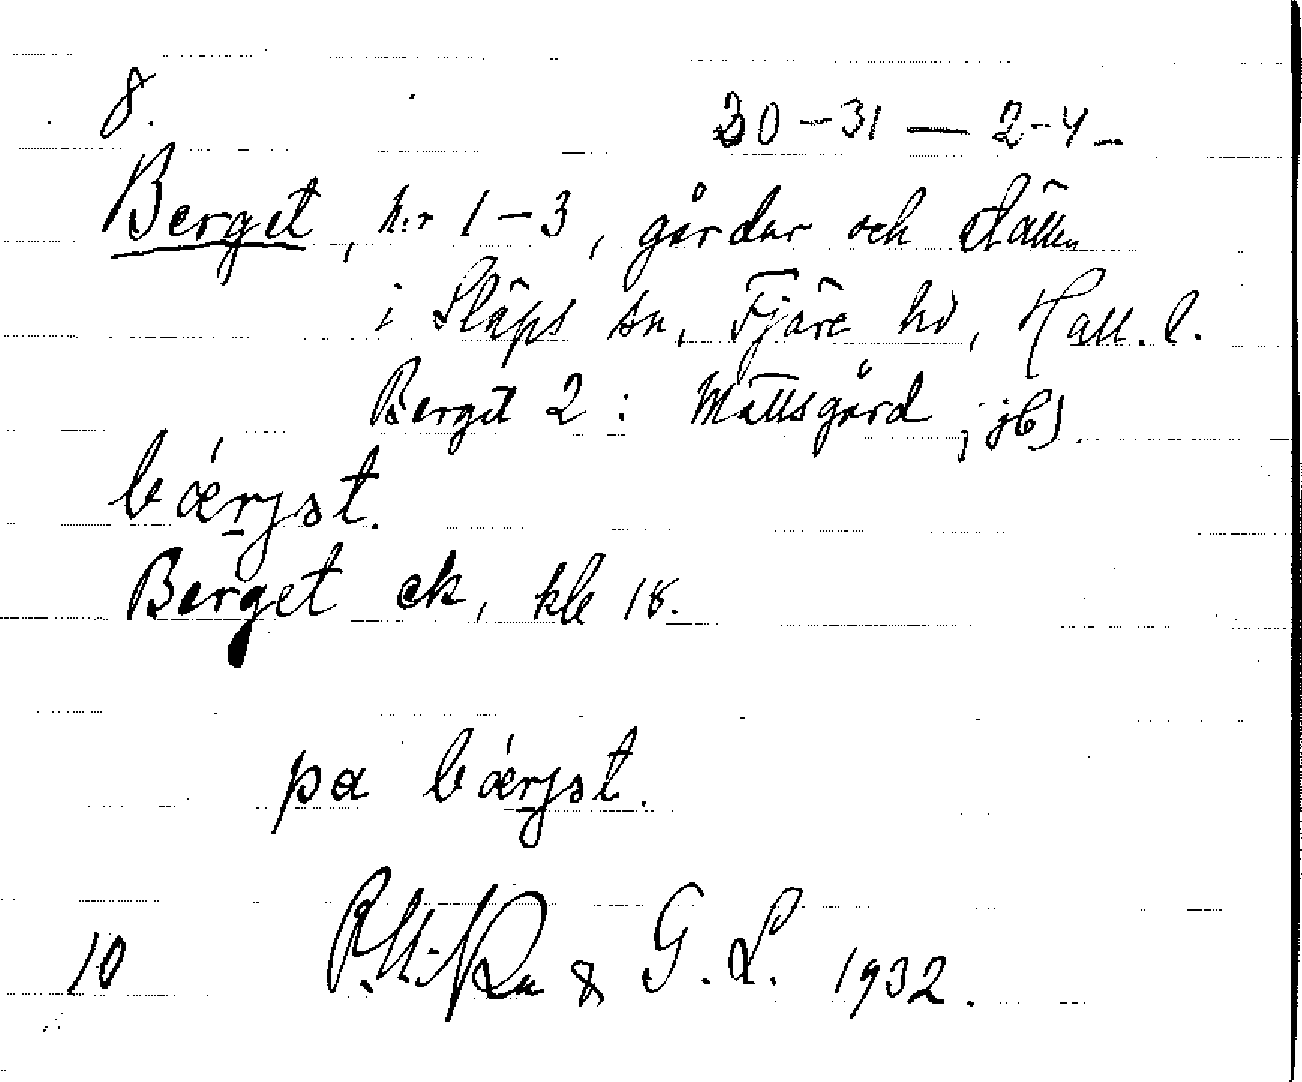 8.
30-31 — 2-4-
Berget, n:r 1-3, gårdar och ställen
i Släps sn, Fjäre hd, Hall. l.
Berget 2: Mattsgård, jb).
bǽrjət.
Berget ek, kbl 18.
pa bǽrjət.
10 & G. L. 1932.